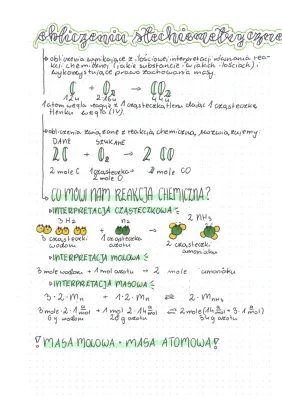 obliczenia stechiometryczne
obliczenia wynikające z ilościowej interpretacji równania rea-
kcji chemicznej (jakie substancje i w jakich ilościach) i
wykorzystujące prawo zachowania masy.
C + O₂ → CO₂
12u 2·16u 44u
1 atom węgla reaguje z 1 cząsteczką tlenu dając 1 cząsteczkę
tlenku węgla (IV).
obliczenia związane z reakcją chemiczną rozwiązujemy:
DANE SZUKANE
2C + O₂ → 2CO
2 mole C 1 cząsteczka 2 mole CO
2 mole O
CO MÓWI NAM REAKCJA CHEMICZNA?
INTERPRETACJA CZĄSTECZKOWA:
3 H₂ N₂ 2 NH₃
3 cząsteczki 1 cząsteczka 2 cząsteczki
wodoru azotu amoniaku
INTERPRETACJA MOLOWA:
3 mole wodoru + 1 mol azotu → 2 mole amoniaku
INTERPRETACJA MASOWA:
3·2·Mн + 1·2·Mₙ ⇄ 2·Mɴʜ₃
3 mole·2·1 g/mol + 1 mol·2·14 g/mol ⇄ 2 mole(14 g/mol+3·1 g/mol)
6g wodoru 28g azotu 34g azotu
! MASA MOLOWA = MASA ATOMOWA !